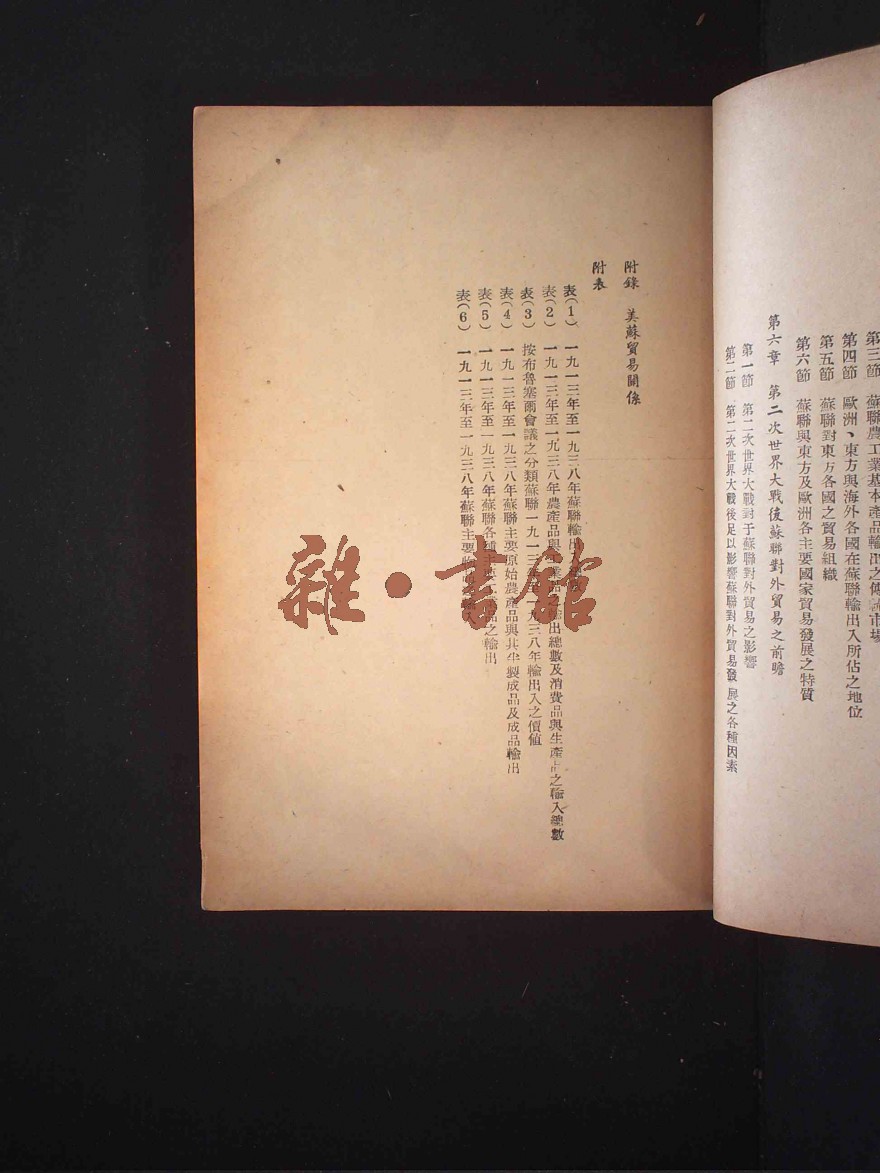 第三節 蘇聯農工業基本產品輸出之傳統市場
第四節 歐洲、東方與海外各國在蘇聯輸出入所佔之地位
第五節 蘇聯對東方各國之貿易組織
第六節 蘇聯與東方及歐洲各主要國家貿易發展之特質
第六章 第二次世界大戰後蘇聯對外貿易之前瞻
第一節 第二次世界大戰對于蘇聯對外貿易之影響
第二節 第二次世界大戰後足以影響蘇聯對外貿易發展之各種因素
附錄 美蘇貿易關係
附表
表(1) 一九一三年至一九三八年蘇聯輸出
表(2) 一九一三年至一九三八年農產品與 業品 輸出總數及消費品與生產品之輸入總數
表(3) 按布魯塞爾會議之分類蘇聯一九一三年 一九三八年輸出入之價值
表(4) 一九一三年至一九三八年蘇聯主要原始農產品與其半製成品及成品輸出
表(5) 一九一三年至一九三八年蘇聯各種主要工 品之輸出
表(6) 一九一三年至一九三八年蘇聯主要 輸入
雜·書館